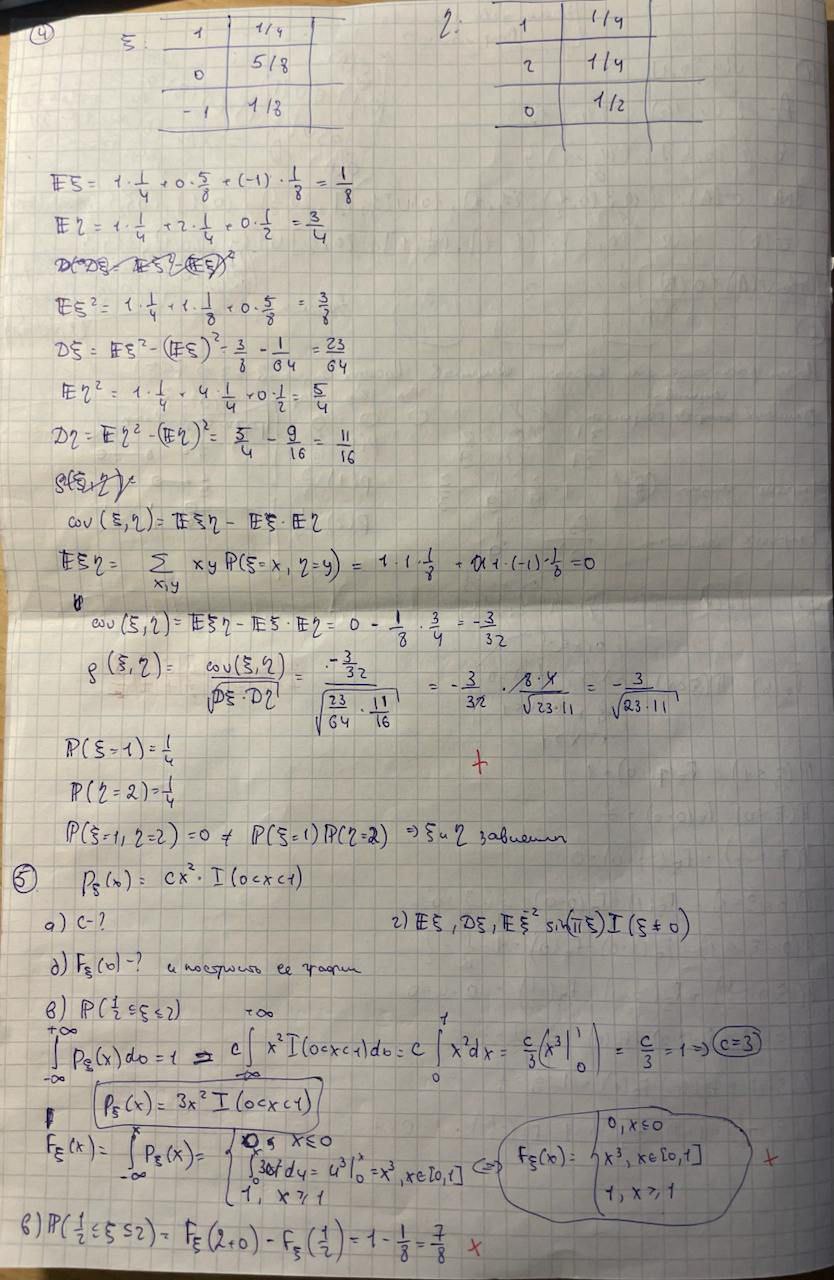 ④ ξ: 1 | 1/4 η: 1 | 1/4
0 | 5/8 2 | 1/4
-1 | 1/8 0 | 1/2
Eξ = 1·1/4 + 0·5/8 + (-1)·1/8 = 1/8
Eη = 1·1/4 + 2·1/4 + 0·1/2 = 3/4
Eξ² = 1·1/4 + 1·1/8 + 0·5/8 = 3/8
Dξ = Eξ² - (Eξ)² = 3/8 - 1/64 = 23/64
Eη² = 1·1/4 + 4·1/4 + 0·1/2 = 5/4
Dη = Eη² - (Eη)² = 5/4 - 9/16 = 11/16
cov(ξ,η) = Eξη - Eξ·Eη
Eξη = Σ_{x,y} xy P(ξ=x, η=y) = 1·1·1/8 + 1·(-1)·1/8 = 0
cov(ξ,η) = Eξη - Eξ·Eη = 0 - 1/8·3/4 = -3/32
ρ(ξ,η) = cov(ξ,η)/√(Dξ·Dη) = (-3/32)/√(23/64·11/16) = -3/32 · 8·4/√(23·11) = -3/√(23·11)
P(ξ=1) = 1/4 +
P(η=2) = 1/4
P(ξ=1, η=2) = 0 ≠ P(ξ=1)P(η=2) ⇒ ξ и η зависимы
⑤ p_ξ(x) = cx²·I(0<x<1)
а) c-? г) Eξ, Dξ, Eξ⁻² sin(πξ) I(ξ≠0)
б) F_ξ(0)-? и построить ее график
в) P(1/2 ≤ ξ ≤ 2)
∫_{-∞}^{+∞} p_ξ(x)do = 1 = c∫_{-∞}^{+∞} x² I(0<x<1)do = c∫_0^1 x²dx = c/3 (x³|_0^1) = c/3 = 1 ⇒ c=3
p_ξ(x) = 3x² I(0<x<1)
F_ξ(x) = ∫_{-∞}^x p_ξ(x) = { 0, x≤0; ∫_0^x 3u² du = u³|_0^x = x³, x∈[0,1]; 1, x≥1 ⇔ F_ξ(x) = { 0, x≤0; x³, x∈[0,1]; 1, x≥1 +
в) P(1/2 ≤ ξ ≤ 2) = F_ξ(2+0) - F_ξ(1/2) = 1 - 1/8 = 7/8 +